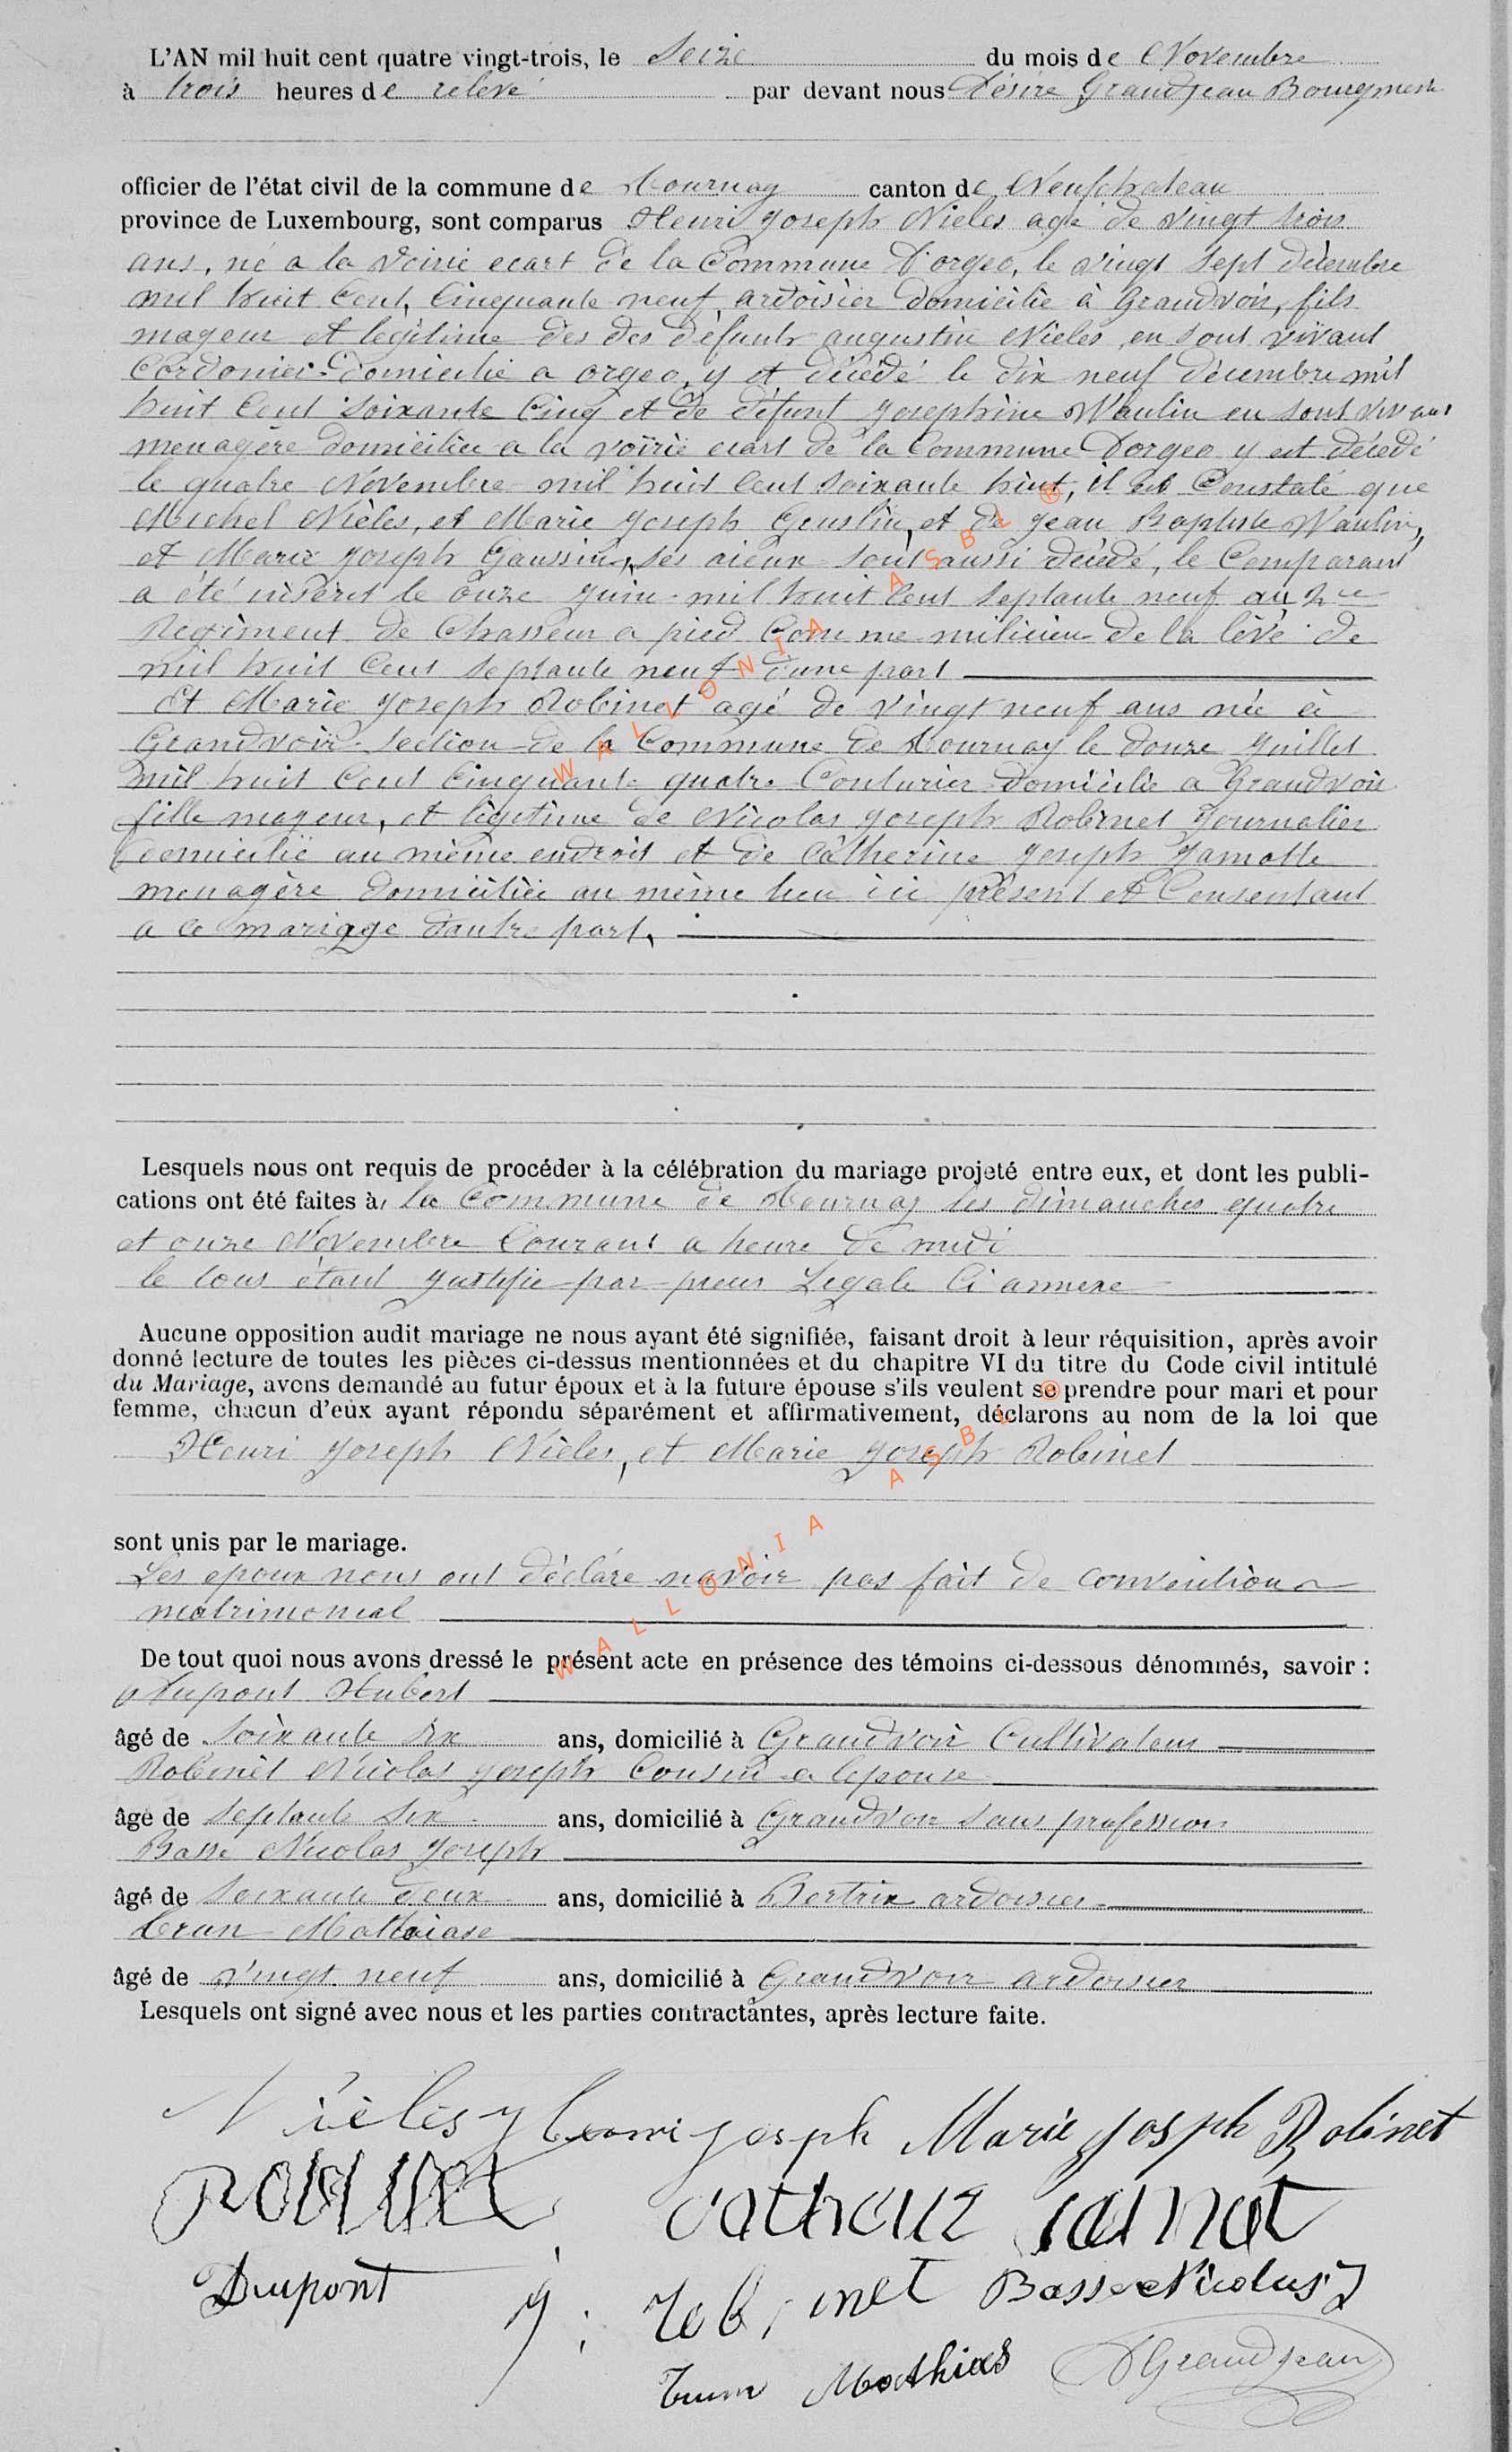 L'AN mil huit cent quatre vingt-trois, le Seize du mois de Novembre
à trois heures de relevé par devant nous Désiré Grandjean Bourgmestre
officier de l'état civil de la commune de Tournay canton de Neufchateau
province de Luxembourg, sont comparus Henri Joseph Nieles agé de vingt trois
ans, né a la Voirie ecart de la Commune D'orgeo, le vingt Sept décembre
mil huit Cent, Cinquante neuf ardoisier domicilié à Grandvoir, fils
mageur et legitime des des défunts augustin Nieles, en sont vivant
Cordonier domicilié a orgeo, y et décédé le dix neuf décembre mil
huit Cent Soixante Cinq et de défunt Josephine Waulin en sont vivant
menagère domiciliée a la voirie ecart de la Commune Dorgeo y est décédé
le quatre Novembre mil huit Cent Soixante huit, il est Constaté que
Michel Nièles, et Marie Joseph et de Jean Baptiste Waulin,
et Marie Joseph Gaussin, ses aieux sont aussi décédé, le Comparant
a été le onze Juin mil huit Cent Septante neuf au 2me
Regiment de Chasseur a pied Comme milicien de la levé de
mil huit Cent Septante neuf d'une part
Et Marie Joseph Robinet agé de vingt neuf ans née à
Grandvoir Section de la Commune de Tournay le douze Juillet
mil huit Cent Cinquante quatre Couturier domicilié a Grandvoir
fille mageur, et légitime de Nicolas Joseph Robinet Journalier
domicilié au même endroit et de Catherine Joseph Jamotte
menagère domiciliée au même lieu ici présent et Consentant
a ce mariage d'autre part,
Lesquels nous ont requis de procéder à la célébration du mariage projeté entre eux, et dont les publi-
cations ont été faites à la Commune de Tournay les dimanches quatre
et onze Novembre Courant a heure de midi
le tous étant Justifie par Legale Ci annexe
Aucune opposition audit mariage ne nous ayant été signifiée, faisant droit à leur réquisition, après avoir
donné lecture de toutes les pièces ci-dessus mentionnées et du chapitre VI du titre du Code civil intitulé
du Mariage, avons demandé au futur époux et à la future épouse s'ils veulent se prendre pour mari et pour
femme, chacun d'eux ayant répondu séparément et affirmativement, déclarons au nom de la loi que
Henri Joseph Nièles, et Marie Joseph Robinet
sont unis par le mariage.
Les epoux nous ont déclaré navoir pas fait de convention
matrimonial
De tout quoi nous avons dressé le présent acte en présence des témoins ci-dessous dénommés, savoir :
Dupont Hubert
âgé de Soixante Six ans, domicilié à Grandvoir Cultivateur
Robinet Nicolas Joseph Cousin a lepouse
âgé de Septante Six ans, domicilié à Grandvoir sans profession
Basse Nicolas Joseph
âgé de Soixante deux ans, domicilié à Bertrix ardoisier
Mathiase
âgé de vingt neuf ans, domicilié à Grandvoir ardoisier
Lesquels ont signé avec nous et les parties contractantes, après lecture faite.
Nièles henri Joseph Marie Josph Robinet
Robinet Jamot
Dupont J : Robinet Basse Nicolas J
Mathias DGrandjean
WALLONIA ASBL ®
WALLONIA ASBL ®